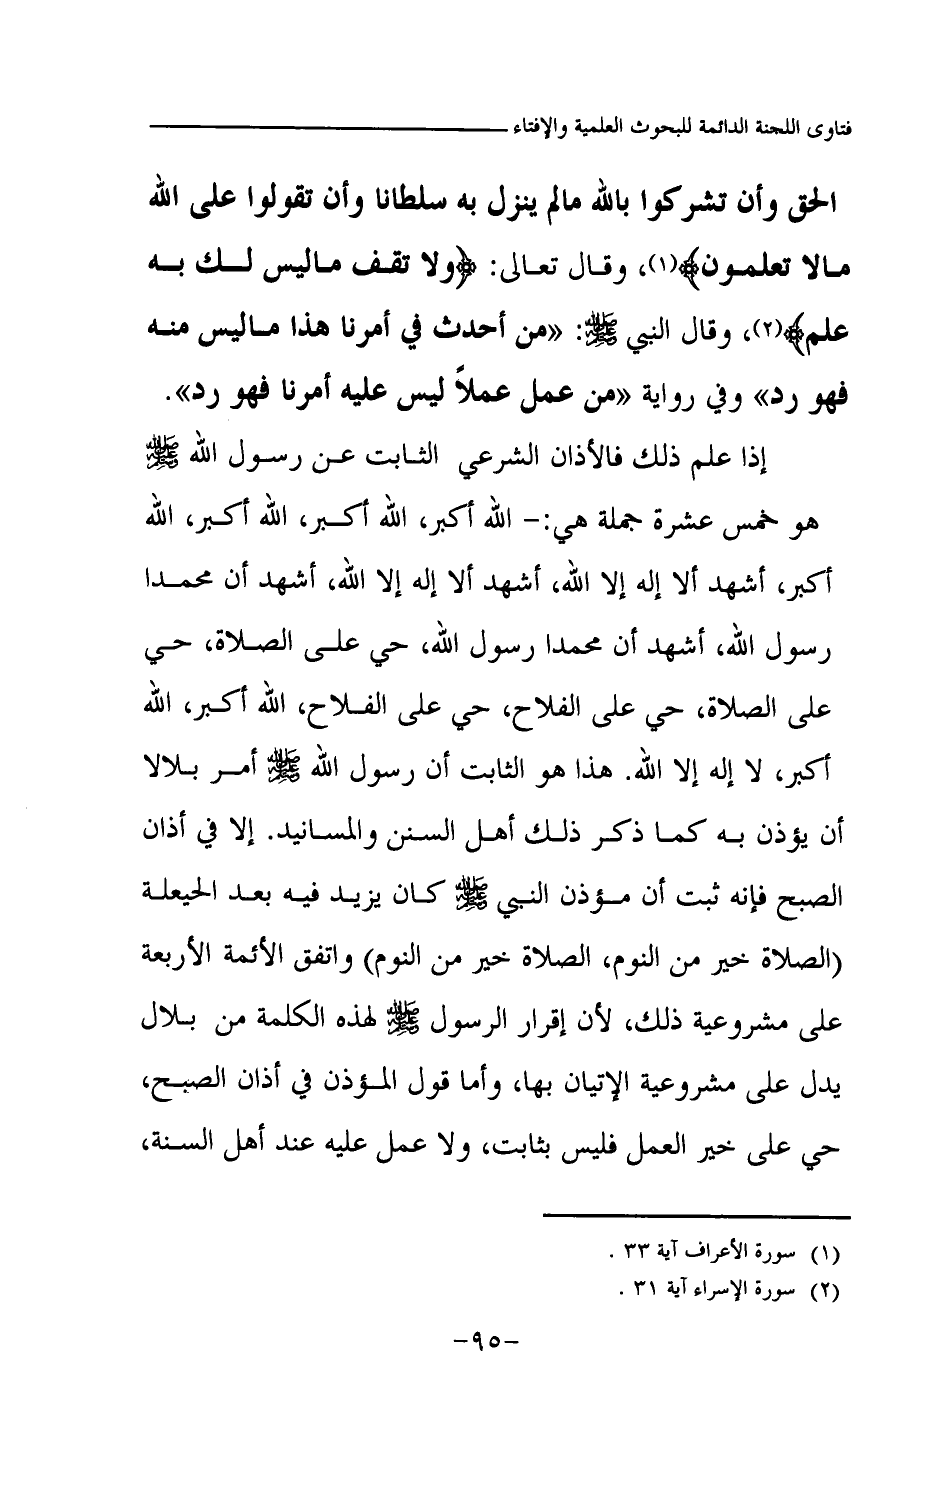 فتاوى اللجنة الدائمة للبحوث العلمية والإفتاء
الحق وأن تشركوا بالله مالم ينزل به سلطانا وأن تقولوا على الله
مالا تعلمون﴾(١)، وقال تعالى: ﴿ولا تقف ماليس لك به
علم﴾(٢)، وقال النبي ﷺ: «من أحدث في أمرنا هذا ماليس منه
فهو رد» وفي رواية «من عمل عملاً ليس عليه أمرنا فهو رد».
إذا علم ذلك فالأذان الشرعي الثابت عن رسول الله ﷺ
هو خمس عشرة جملة هي:- الله أكبر، الله أكبر، الله أكبر، الله
أكبر، أشهد ألا إله إلا الله، أشهد ألا إله إلا الله، أشهد أن محمدا
رسول الله، أشهد أن محمدا رسول الله، حي على الصلاة، حي
على الصلاة، حي على الفلاح، حي على الفلاح، الله أكبر، الله
أكبر، لا إله إلا الله. هذا هو الثابت أن رسول الله ﷺ أمر بلالا
أن يؤذن به كما ذكر ذلك أهل السنن والمسانيد. إلا في أذان
الصبح فإنه ثبت أن مؤذن النبي ﷺ كان يزيد فيه بعد الحيعلة
(الصلاة خير من النوم، الصلاة خير من النوم) واتفق الأئمة الأربعة
على مشروعية ذلك، لأن إقرار الرسول ﷺ لهذه الكلمة من بلال
يدل على مشروعية الإتيان بها، وأما قول المؤذن في أذان الصبح،
حي على خير العمل فليس بثابت، ولا عمل عليه عند أهل السنة،
(١) سورة الأعراف آية ٣٣ .
(٢) سورة الإسراء آية ٣١ .
-٩٥-